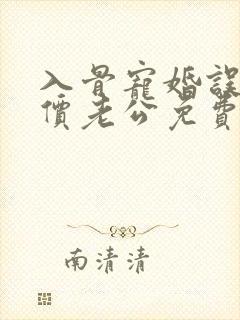 入骨寵婚誤
價老公免費
南清清